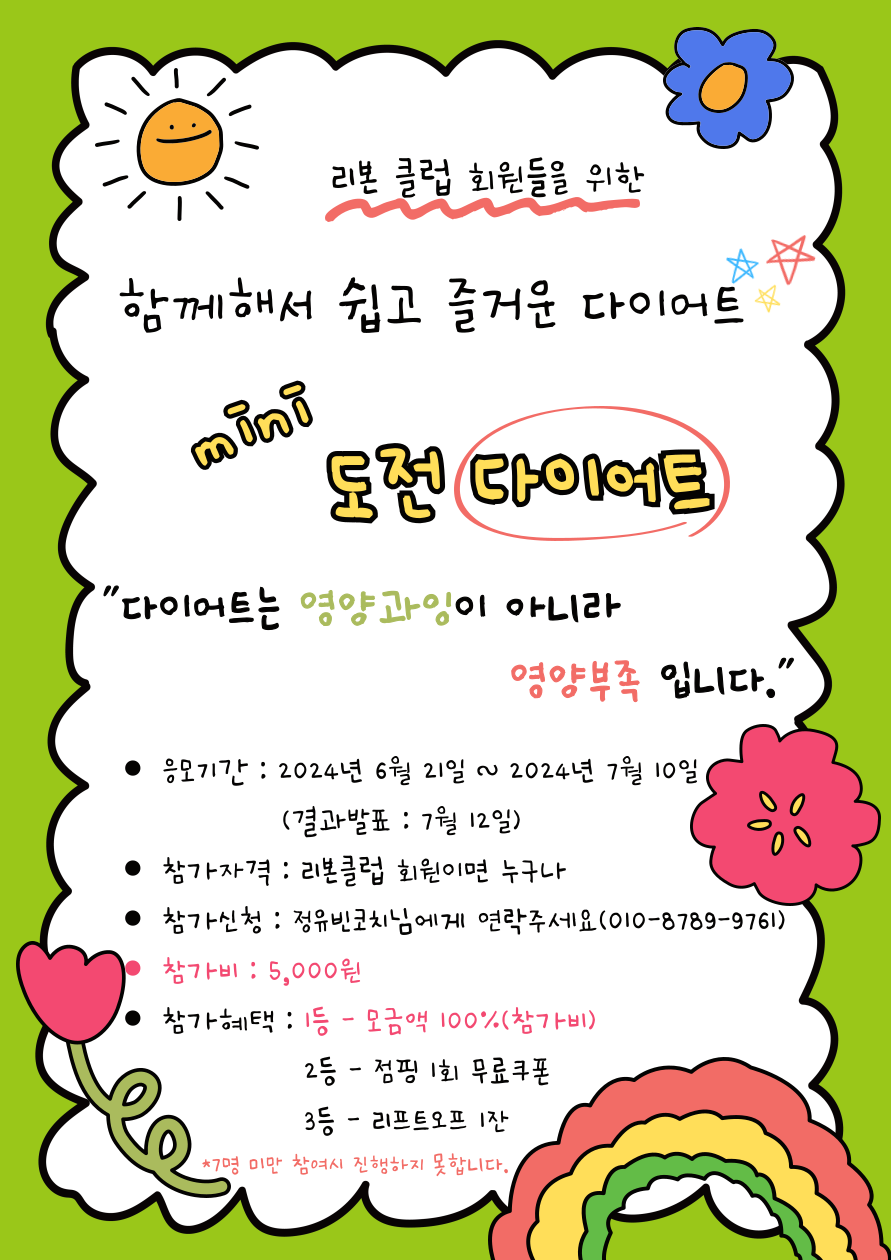 리본 클럽 회원들을 위한
함께해서 쉽고 즐거운 다이어트
mini
도전 다이어트
"다이어트는 영양과잉이 아니라
영양부족 입니다."
● 응모기간 : 2024년 6월 21일 ~ 2024년 7월 10일
(결과발표 : 7월 12일)
● 참가자격 : 리본클럽 회원이면 누구나
● 참가신청 : 정유빈코치님에게 연락주세요(010-8789-9761)
● 참가비 : 5,000원
● 참가혜택 : 1등 - 모금액 100%(참가비)
2등 - 점핑 1회 무료쿠폰
3등 - 리프트오프 1잔
*7명 미만 참여시 진행하지 못합니다.